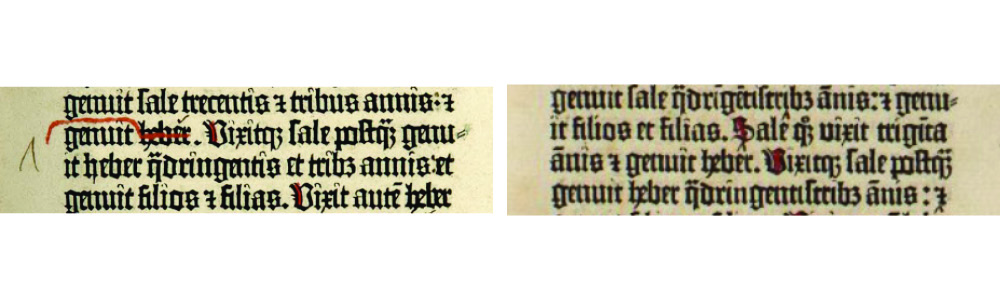 genuit sale trecentis ⁊ tribus annis:⁊
genuit heber. Vixitqꝫ sale postqꝫ̃ genu⸗
it heber q̃dringentis et tribꝫ annis:et
genuit filios ⁊ filias. Vixit autē heber
genuit sale q̃drĩgẽtistribꝫ ãnis:⁊ genu⸗
it filios et filias. Salẽ qꝫ̃ vixit trigĩta
ãnis ⁊ genuit heber. Vixitqꝫ sale postqꝫ̃
genuit heber q̃dringentistribꝫ ãnis:⁊